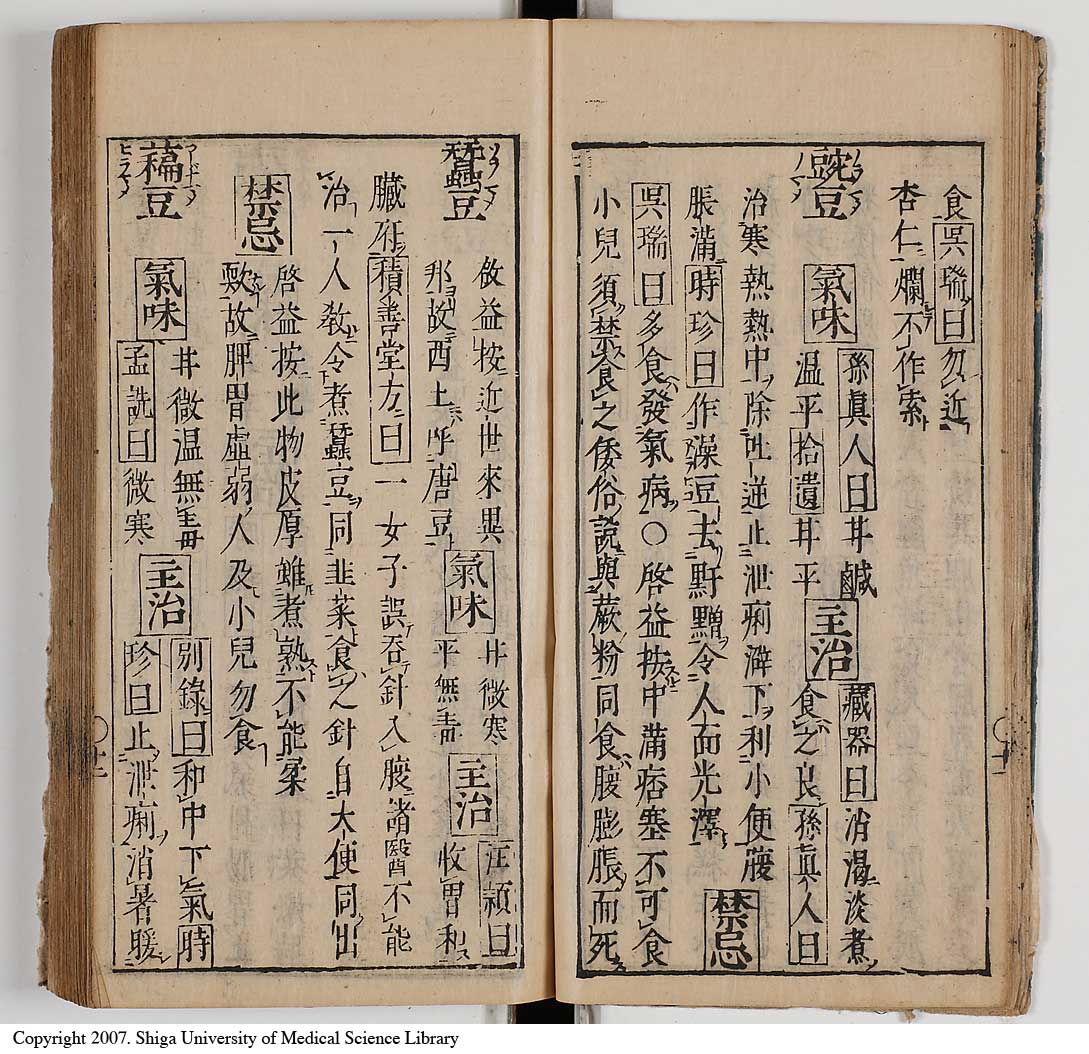 食呉瑞曰勿近
杏仁爛不作索
豌豆
氣味
孫眞人曰甘鹹
温平拾遺甘平
主治
藏器曰消渴淡煮
食之良孫眞人曰
治寒熱熱中除吐逆止泄痢澼下利小便腹
脹滿時珍曰作澡豆去䵟䵴令人面光澤
禁忌
呉瑞曰多食發氣病○啓益按中滿痞塞不可食
小兒須禁食之倭俗説與蕨粉同食腹膨脹而死
蠶豆
啓益按近世來異
邦故西土呼唐豆
氣味
甘微寒
平無毒
主治
汪頴曰
收胃和
臟府積善堂方曰一女子誤吞針入腹諸醫不能
治一人敎令煮蠶豆同韭菜食之針自大便同出
禁忌
啓益按此物皮厚雖煮熟不能柔
軟故脾胃虛弱人及小兒勿食
藊豆
氣味
甘微温無毒
孟詵曰微寒
主治
別錄曰和中下氣時
珍曰止泄痢消暑暖
Copyright 2007. Shiga University of Medical Science Library